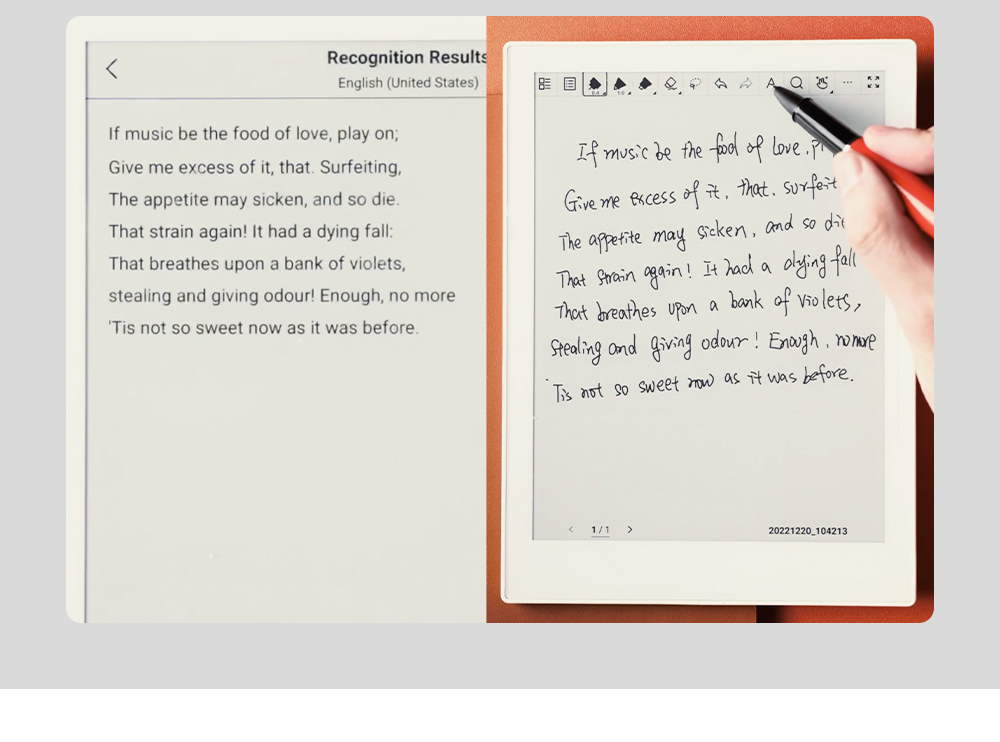 Recognition Results
English (United States)
If music be the food of love, play on;
Give me excess of it, that. Surfeiting,
The appetite may sicken, and so die.
That strain again! It had a dying fall:
That breathes upon a bank of violets,
stealing and giving odour! Enough, no more
'Tis not so sweet now as it was before.
If music be the food of love,
Give me excess of it, that. surfeit
The appetite may sicken, and so die
That strain again! It had a dying fall
That breathes upon a bank of violets,
stealing and giving odour! Enough, no more
'Tis not so sweet now as it was before.
1/1
20221220_104213